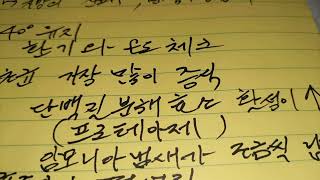 40° 유지
환기와 온도 체크
가장 많이 증식
단백질 분해 효소 활성이 ↑
(프로테아제)
암모니아 냄새가 조금씩